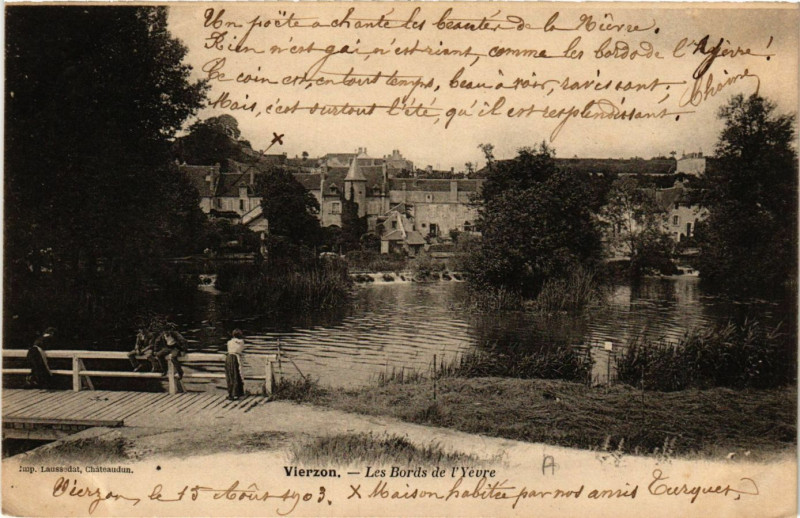 Un poëte a chanté les beautés de la Nièvre.
Rien n'est gai, n'est riant, comme les bords de l'Yèvre!
Ce coin est, en tous temps, beau à voir, ravissant;
Mais, c'est surtout l'été, qu'il est resplendissant.
x
Imp. Laussedat, Châteaudun.
Vierzon. — Les Bords de l'Yèvre
A
Vierzon, le 15 Août 1903. x Maison habitée par nos amis Turquet,